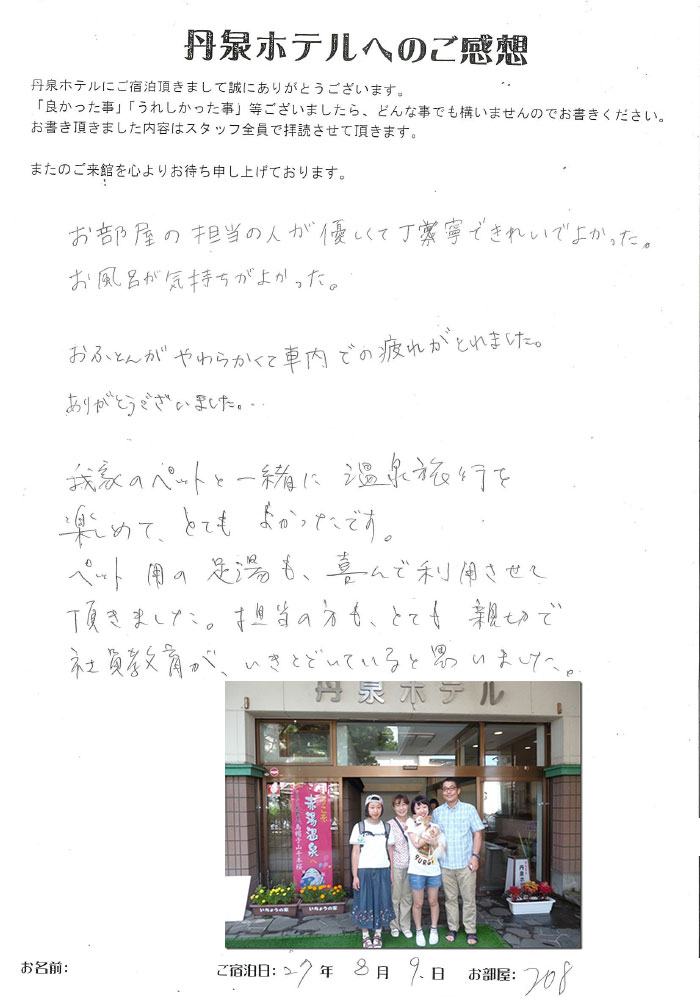 丹泉ホテルへのご感想
丹泉ホテルにご宿泊頂きまして誠にありがとうございます。
「良かった事」「うれしかった事」等ございましたら、どんな事でも構いませんのでお書きください。
お書き頂きました内容はスタッフ全員で拝読させて頂きます。
またのご来館を心よりお待ち申し上げております。
お部屋の担当の人が優しくて丁寧できれいでよかった。
お風呂が気持ちがよかった。
おふとんがやわらかくて車内での疲れがとれました。
ありがとうございました。
我家のペットと一緒に温泉旅行を
楽しめて、とてもよかったです。
ペット用の足湯も、喜んで利用させて
頂きました。担当の方も、とても親切で
社員教育が、いきとどいていると思いました。
丹泉ホテル
ようこそ
赤湯温泉へ
烏帽子山千本桜
丹泉ホテル
いちょうの家
いちょうの家
お名前:
ご宿泊日: 27年 8月 9日 お部屋: 208